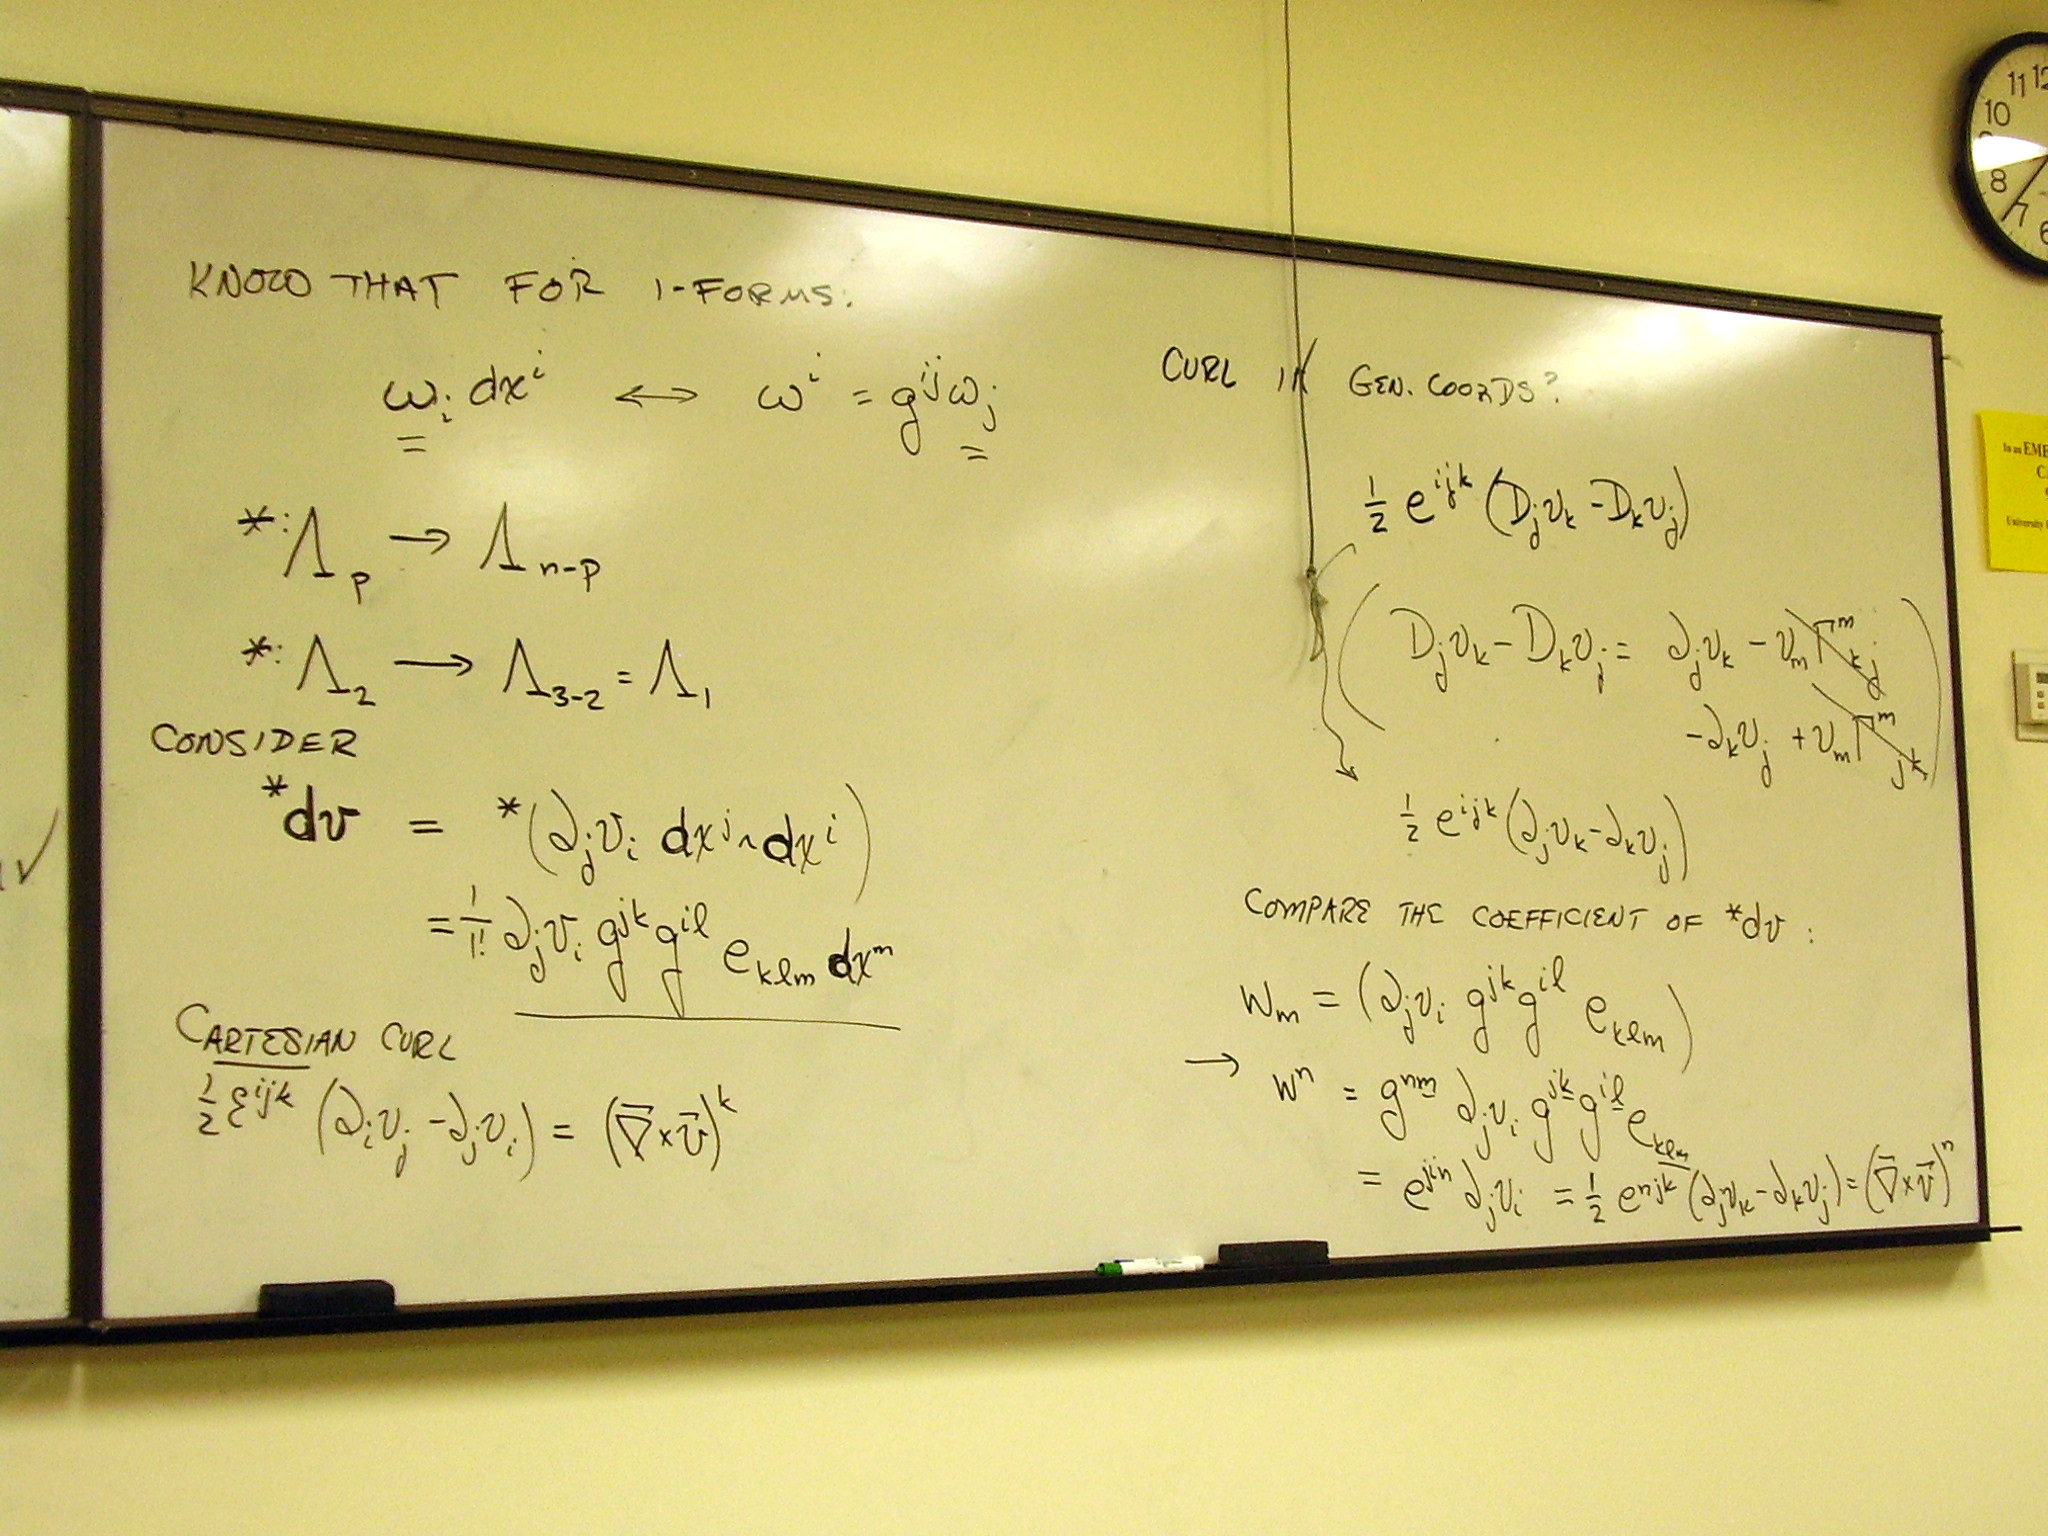 KNOW THAT FOR 1-FORMS:
ω_i dx^i ↔ ω^i = g^{ij} ω_j
*: Λ_p → Λ_{n-p}
*: Λ_2 → Λ_{3-2} = Λ_1
CONSIDER
*dv = *(∂_j v_i dx^j ∧ dx^i)
= 1/1! ∂_j v_i g^{jk} g^{il} e_{klm} dx^m
CARTESIAN CURL
1/2 ε^{ijk} (∂_i v_j - ∂_j v_i) = (∇⃗ × v⃗)^k
CURL IN GEN. COORDS?
1/2 e^{ijk} (D_j v_k - D_k v_j)
(D_j v_k - D_k v_j = ∂_j v_k - v_m Γ^m_{kj}
- ∂_k v_j + v_m Γ^m_{jk})
1/2 e^{ijk} (∂_j v_k - ∂_k v_j)
COMPARE THE COEFFICIENT OF *dv:
W_m = (∂_j v_i g^{jk} g^{il} e_{klm})
→ W^n = g^{nm} ∂_j v_i g^{jk} g^{il} e_{klm}
= e^{jin} ∂_j v_i = 1/2 e^{njk} (∂_j v_k - ∂_k v_j) = (∇⃗ × v⃗)^n
11 12
10
8
7
6
In an EME
University